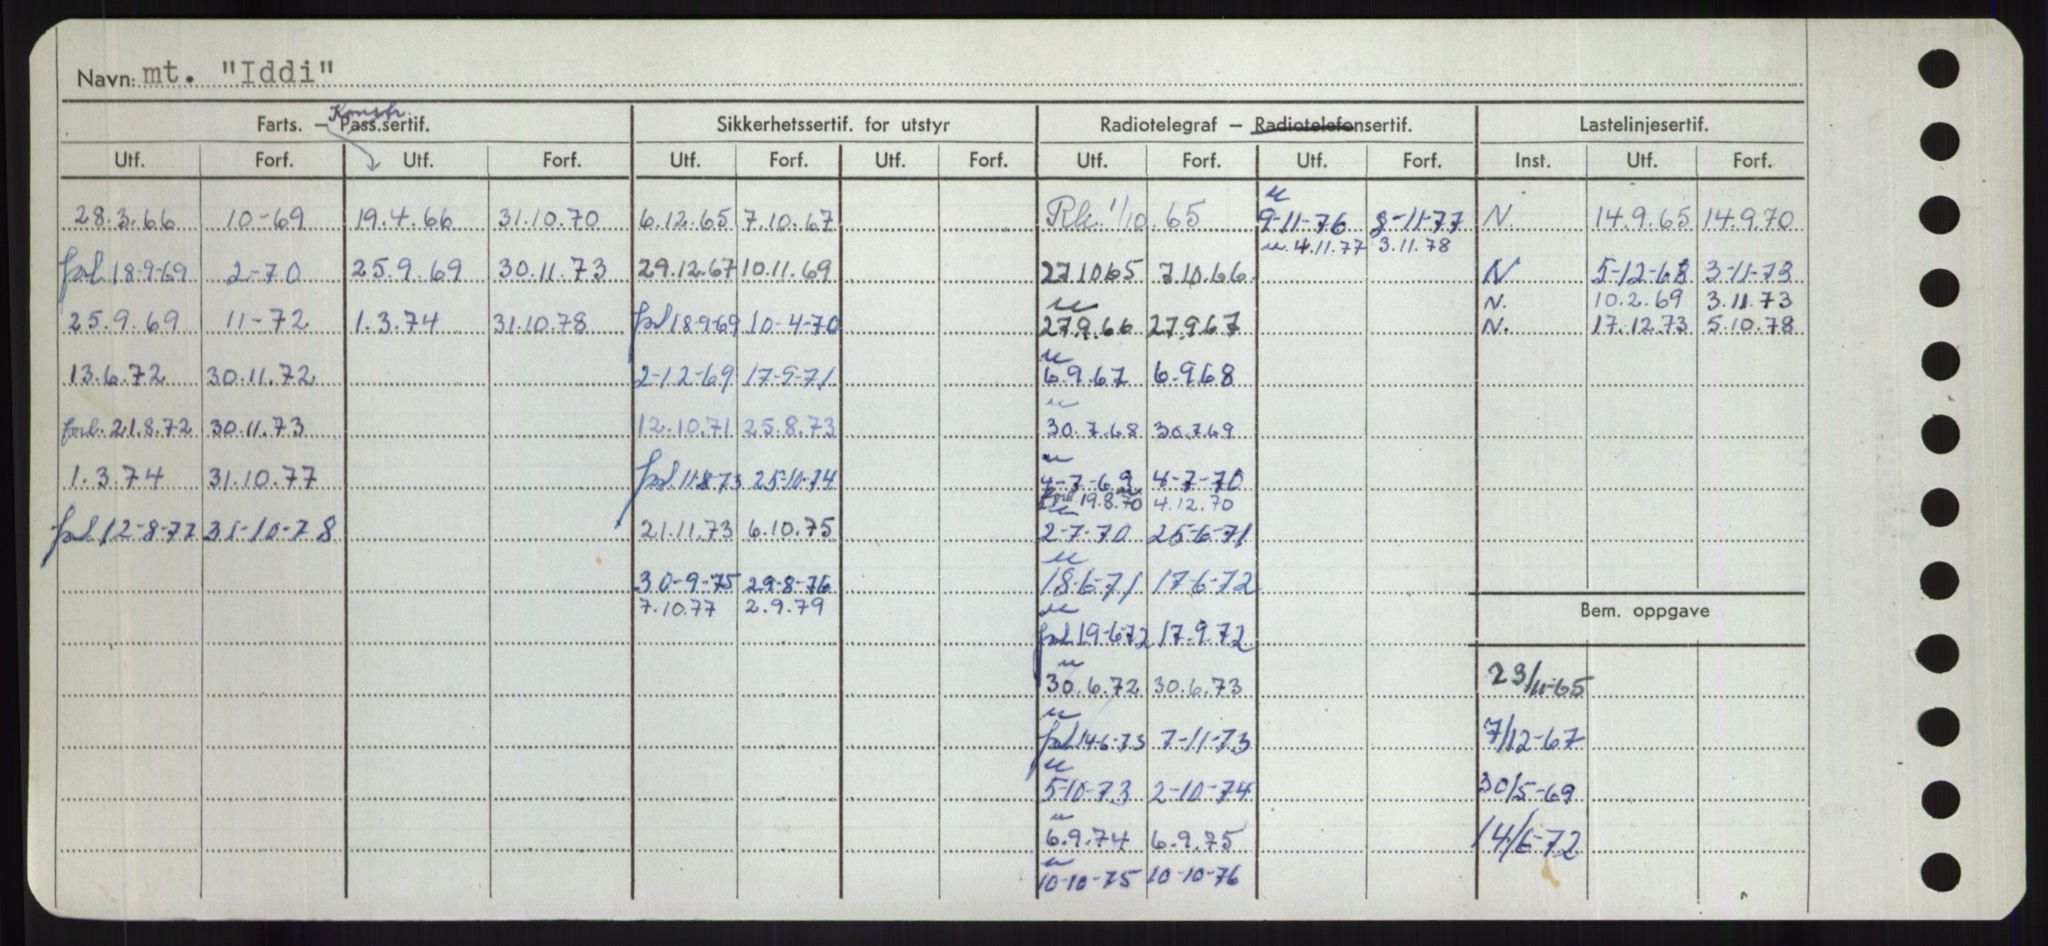 Navn: mt. "Iddi"
Konstr.
Farts. — Pass.sertif. Sikkerhetssertif. for utstyr Radiotelegraf — Radiotelefonsertif. Lastelinjesertif.
Utf. Forf. Utf. Forf. Utf. Forf. Utf. Forf. Utf. Forf. Utf. Forf. Inst. Utf. Forf.
u
28.3.66 10-69 19.4.66 31.10.70 6.12.65 7.10.67 Rk. 1/10.65 9-11-76 8-11-77 N. 14.9.65 14.9.70
u. 4.11.77 3.11.78
forl 18-9-69 2-70 25.9.69 30.11.73 29.12.67 10.11.69 27.10.65 7.10.66 N 5-12-68 3-11-73
u N. 10.2.69 3.11.73
25.9.69 11-72 1.3.74 31.10.78 forl 18-9-69 10-4-70 27.9.66 27.9.67 N. 17.12.73 5.10.78
u
13.6.72 30.11.72 2-12-69 17-9-71 6.9.67 6.9.68
u
forl. 21.8.72 30.11.73 12.10.71 25.8.73 30.7.68 30.7.69
u
1.3.74 31.10.77 forl 11-8-73 25-10-74 4-7-69 4-7-70
forl. 19.8.70 4.12.70
u
forl 12-8-77 31-10-78 21.11.73 6.10.75 2-7-70 25-6-71
u
30-9-75 29-8-76 18-6-71 17-6-72
7.10.77 2.9.79 u
Bem. oppgave
forl 19-6-72 17-9-72
u
30.6.72 30.6.73 23/11-65
u
forl 14-6-73 7-11-73 7/12-67
u
5-10-73 2-10-74 30/5-69
u
6.9.74 6.9.75 14/6-72
u
10-10-75 10-10-76